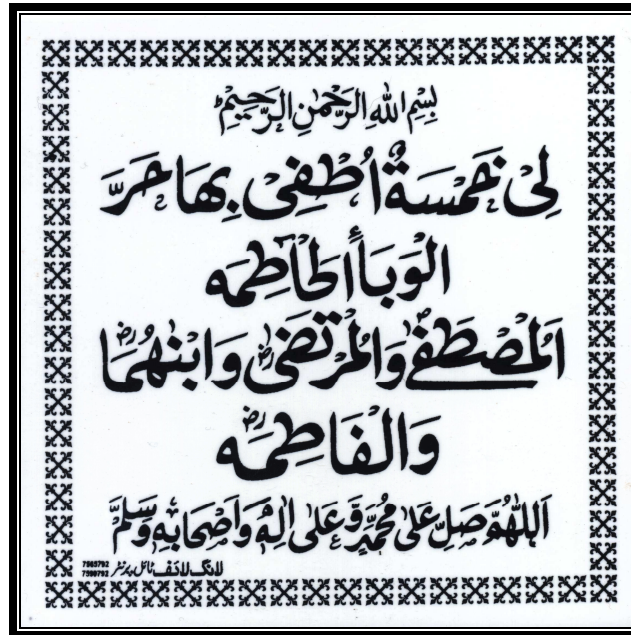 بِسْمِ اللهِ الرَّحْمٰنِ الرَّحِيْمِ
لِیْ خَمْسَةٌ اُطْفِیْ بِهَا حَرَّ
الْوَبَاْأَلْحَاطِمَه
اَلْمُصْطَفٰےؐ وَالْمُرْتَضٰیؓ وَابْنٰهُمَاؓ
وَالْفَاطِمَهؓ
اَللّٰهُمَّ صَلِّ عَلٰی مُحَمَّدٍ وَّعَلٰی اٰلِهٖ وَاَصْحَابِهٖ وَسَلِّمْ
لانگ لائف ٹائل پرنٹر 7965792
7590792